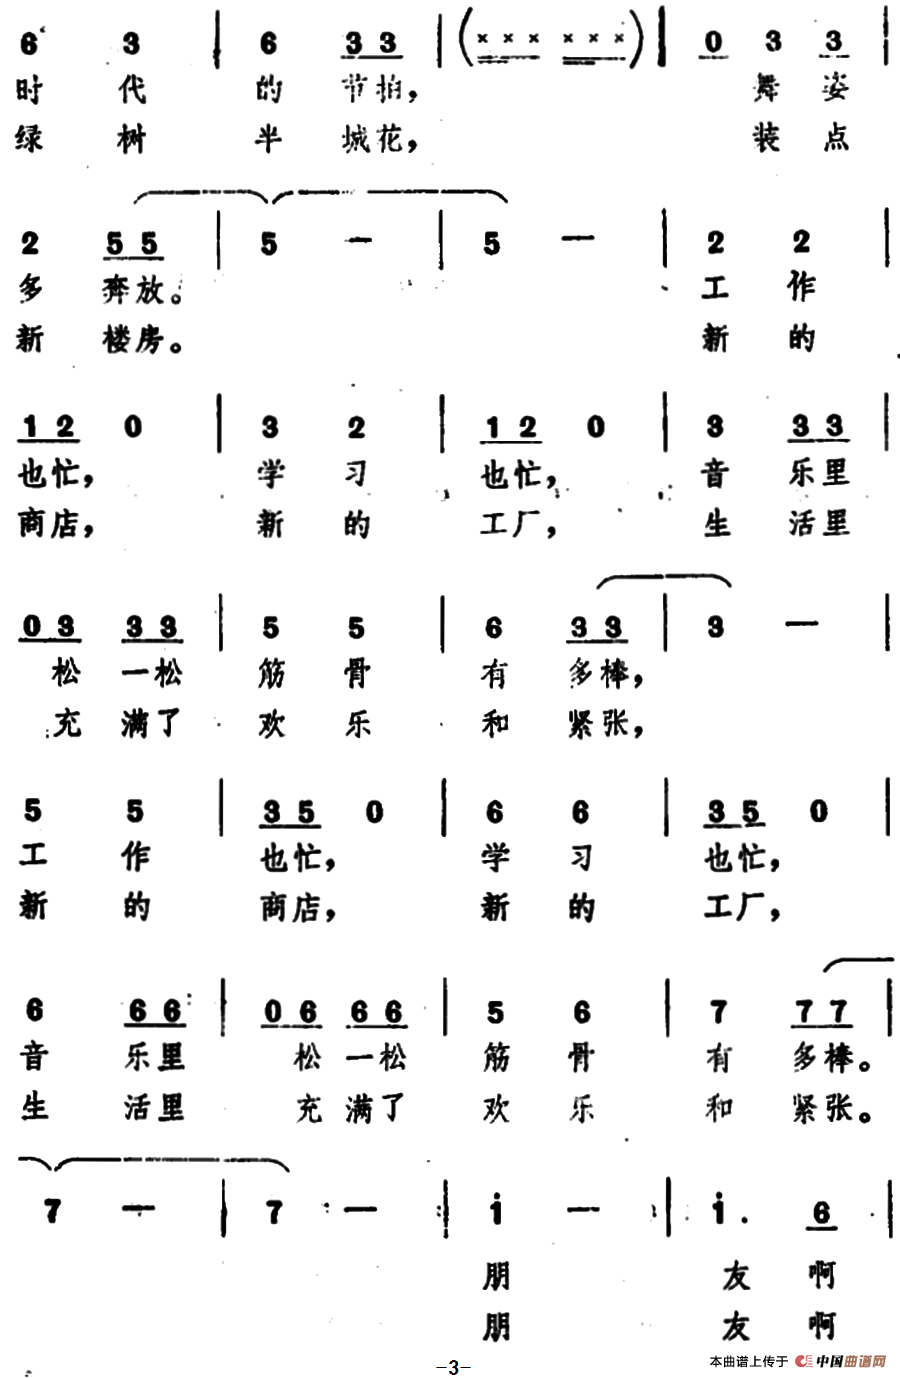 6 3 | 6 3 3 | (× × × × × ×) | 0 3 3 |
时代的节拍， 舞姿
绿树半城花， 装点
2 5 5 | 5 — | 5 — | 2 2 |
多奔放。 工作
新楼房。 新的
1 2 0 | 3 2 | 1 2 0 | 3 3 3 |
也忙， 学习也忙， 音乐里
商店， 新的工厂， 生活里
0 3 3 3 | 5 5 | 6 3 3 | 3 — |
松一松筋骨有多棒，
充满了欢乐和紧张，
5 5 | 3 5 0 | 6 6 | 3 5 0 |
工作也忙， 学习也忙，
新的商店， 新的工厂，
6 6 6 | 0 6 6 6 | 5 6 | 7 7 7 |
音乐里松一松筋骨有多棒。
生活里充满了欢乐和紧张。
7 — | 7 — | i — | i. 6 |
朋友啊
朋友啊
-3-
本曲谱上传于 中国曲谱网